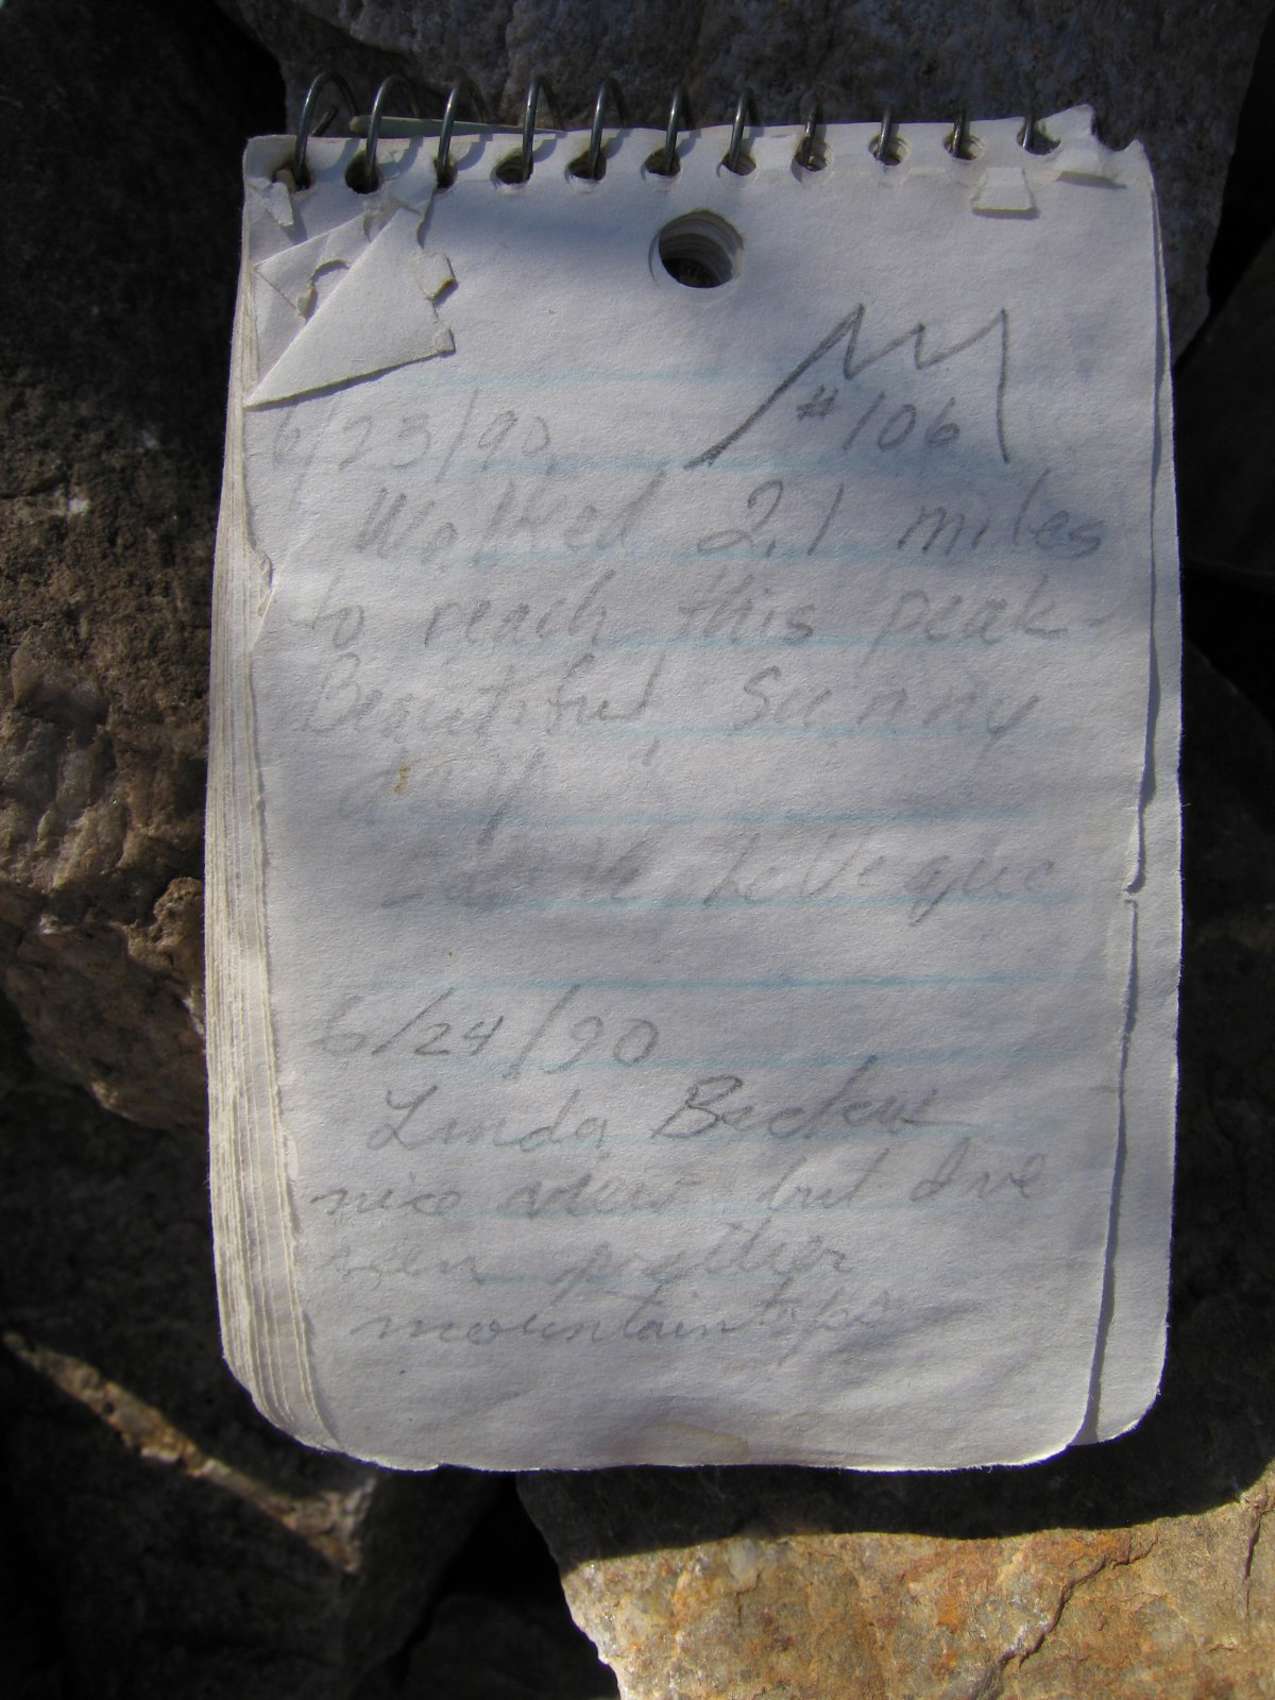 #106
6/23/90
Walked 2.1 miles
to reach this peak
Beautiful Sunny
day!
LeVeque
6/24/90
Linda
nice view but I've
seen prettier
mountain tops